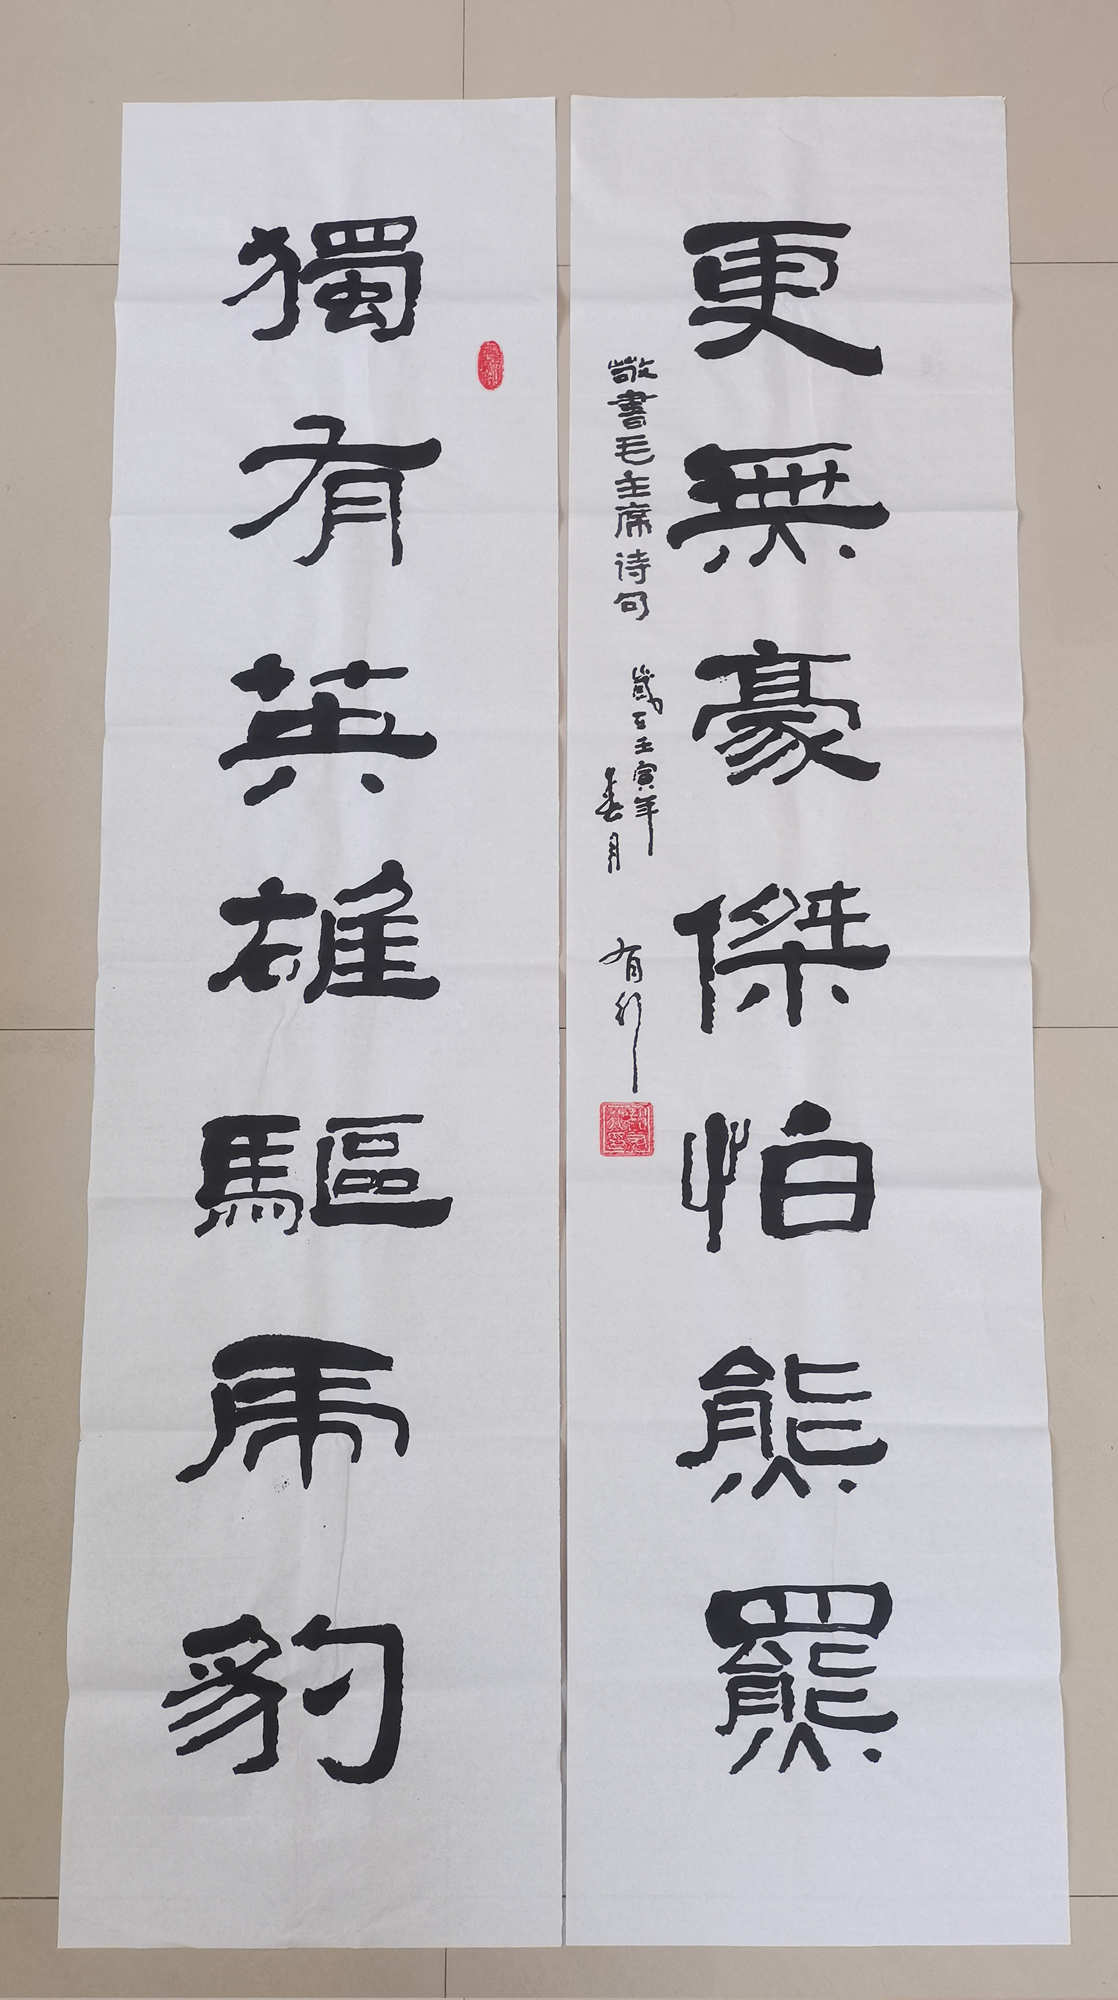 獨有英雄驅虎豹
更無豪傑怕熊羆
敬書毛主席诗句
歲在壬寅年
春月
有彬